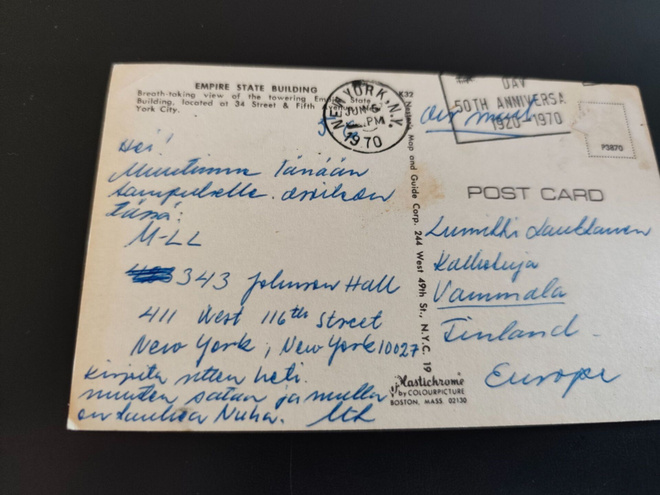 EMPIRE STATE BUILDING
Breath-taking view of the towering Empire State
Building, located at 34 Street & Fifth Avenue, New
York City.
K32
NEW YORK, N.Y.
JUN 5
PM
1970
DAV
50TH ANNIVERSA
1920-1970
Air mail
P3870
POST CARD
Hei!
Muutimme Tänään
kampukselle. osoite on
tässä:
M-LL
343 Johnson Hall
411 West 116th Street
New York, New York 10027
Kirjoita sitten heti
muuten satan ja mulla
on Nuha. MLL
Nester's Map and Guide Corp. 244 West 49th St., N.Y.C. 19
Plastichrome
by COLOURPICTURE
BOSTON, MASS. 02130
Laukkanen
Vammala
Finland
Europe